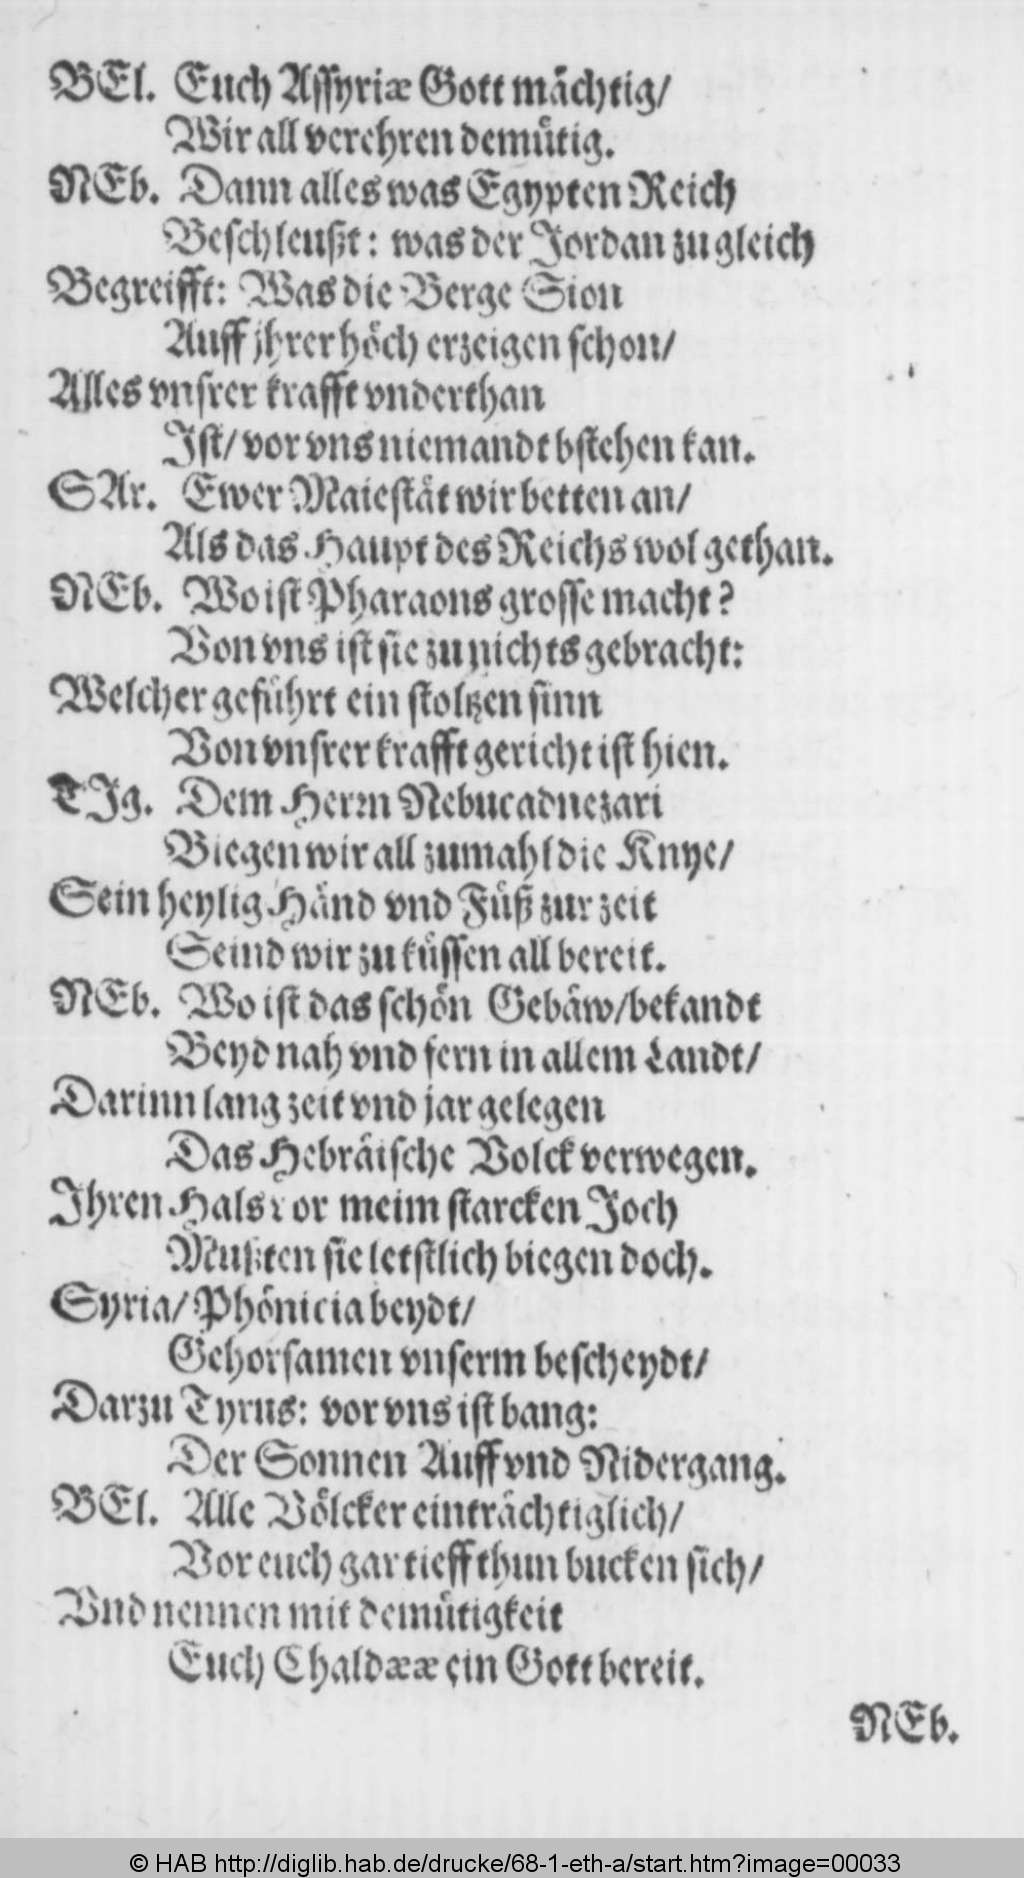 BEl. Euch Assyriæ Gott mächtig/
Wir all verehren demütig.
NEb. Dann alles was Egypten Reich
Beschleußt: was der Jordan zu gleich
Begreifft: Was die Berge Sion
Auff jhrer höch erzeigen schon/
Alles vnsrer krafft vnderthan
Ist/ vor vns niemandt bstehen kan.
SAr. Ewer Maiestät wir betten an/
Als das Haupt des Reichs wol gethan.
NEb. Wo ist Pharaons grosse macht?
Von vns ist sie zu nichts gebracht:
Welcher geführt ein stoltzen sinn
Von vnsrer krafft gericht ist hien.
TIg. Dem Herrn Nebucadnezari
Biegen wir all zumahl die Knye/
Sein heylig Händ vnd Füß zur zeit
Seind wir zu küssen all bereit.
NEb. Wo ist das schön Gebäw/bekandt
Beyd nah vnd fern in allem Landt/
Darinn lang zeit vnd jar gelegen
Das Hebräische Volck verwegen.
Ihren Hals vor meim starcken Joch
Mußten sie letstlich biegen doch.
Syria/ Phönicia beydt/
Gehorsamen vnserm bescheydt/
Darzu Tyrus: vor vns ist bang:
Der Sonnen Auff vnd Nidergang.
BEl. Alle Völcker einträchtiglich/
Vor euch gar tieff thun bucken sich/
Vnd nennen mit demütigkeit
Euch Chaldææ ein Gott bereit.
NEb.
© HAB http://diglib.hab.de/drucke/68-1-eth-a/start.htm?image=00033